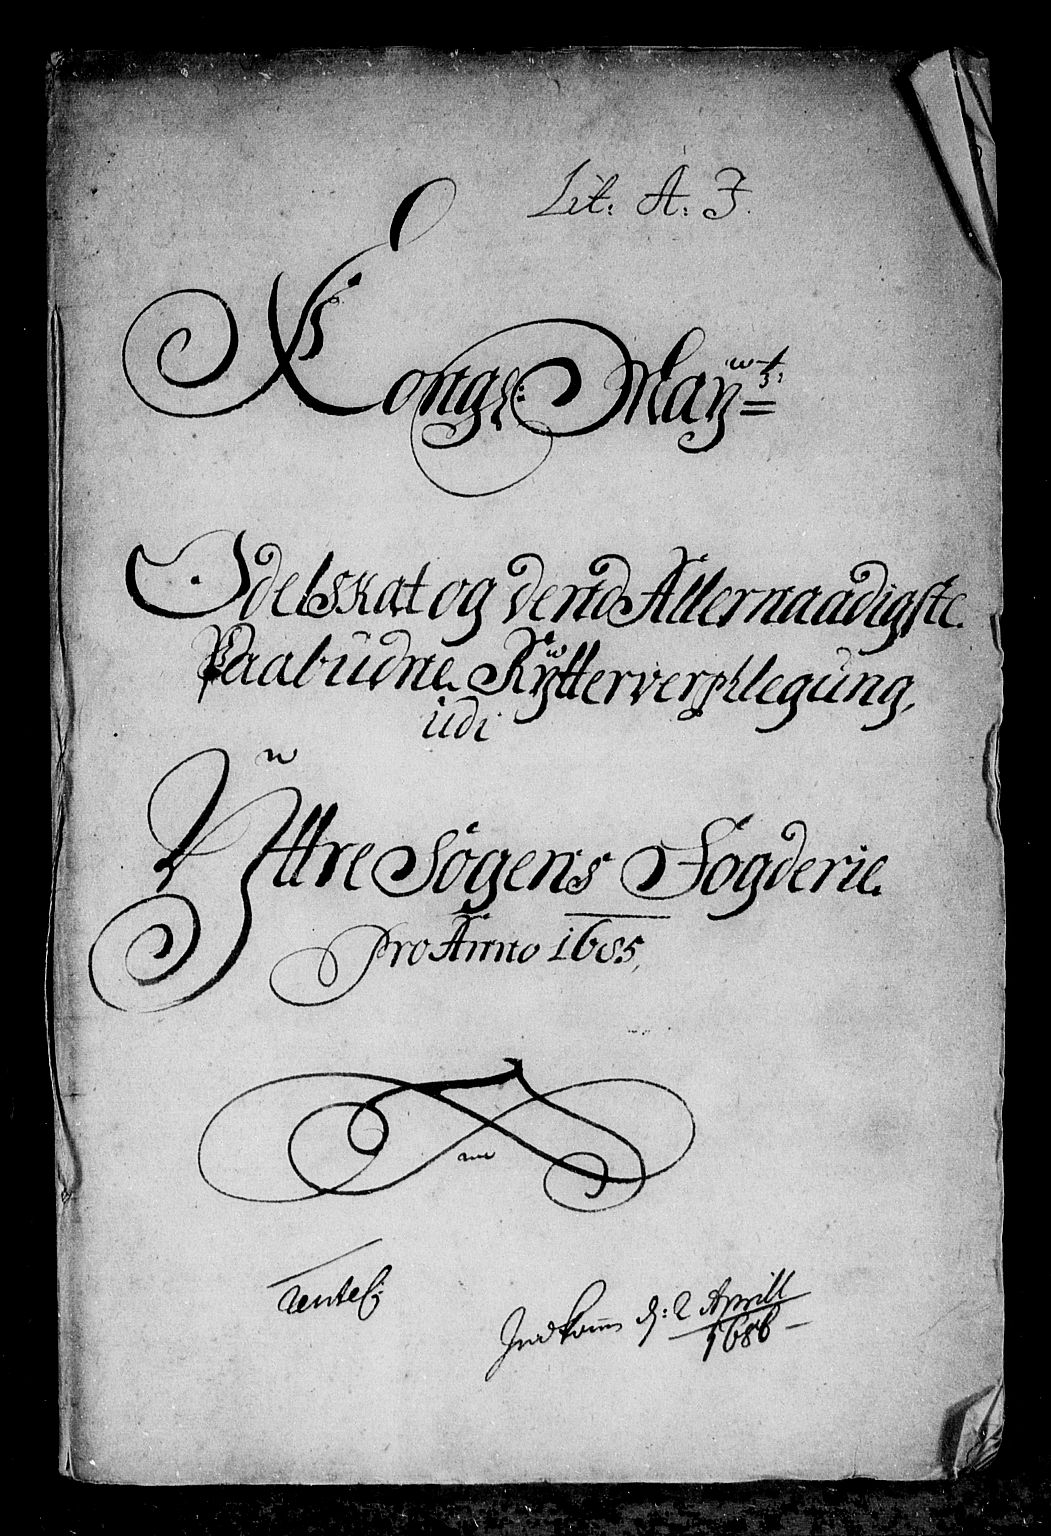 Lit: A: J.
Kongl: Maÿtz:
Odelskat og dend Allernaadigste
Paabudne Rÿtterverplegung,
udi
Ÿttre Sogens Fogderie.
Pro Anno 1685,
Jndkom d: 2 Aprill
1686